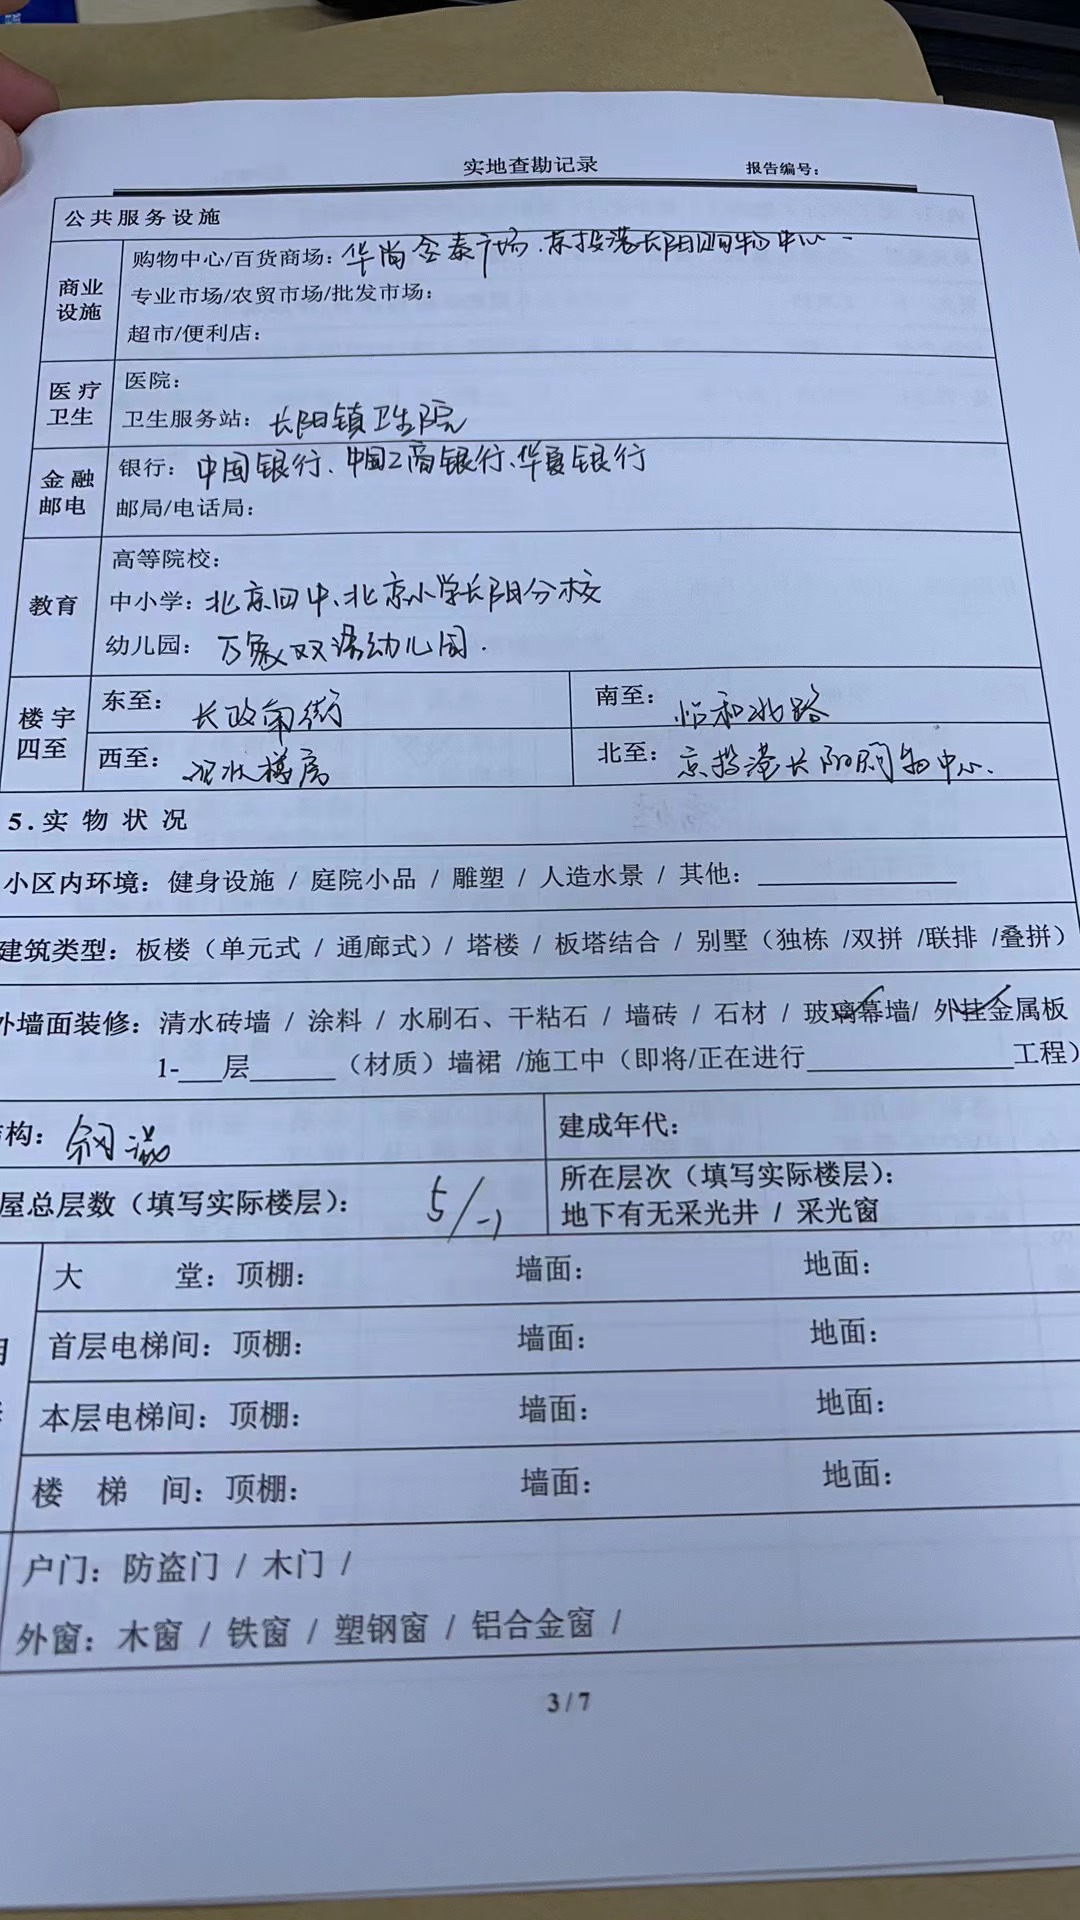 实地查勘记录 报告编号：
公共服务设施
商业设施
购物中心/百货商场：华尚金泰广场、京投港长阳购物中心
专业市场/农贸市场/批发市场：
超市/便利店：
医疗卫生
医院：
卫生服务站：长阳镇卫生院
金融邮电
银行：中国银行、中国工商银行、华夏银行
邮局/电话局：
教育
高等院校：
中小学：北京四中、北京小学长阳分校
幼儿园：万象双语幼儿园.
楼宇四至
东至：长政南街 南至：怡和北路
西至：楼房 北至：京投港长阳购物中心.
5.实物状况
小区内环境：健身设施 / 庭院小品 / 雕塑 / 人造水景 / 其他：
建筑类型：板楼（单元式 / 通廊式）/ 塔楼 / 板塔结合 / 别墅（独栋 /双拼 /联排 /叠拼）
外墙面装修：清水砖墙 / 涂料 / 水刷石、干粘石 / 墙砖 / 石材 / 玻璃幕墙/ 外挂金属板
1-___层______（材质）墙裙 /施工中（即将/正在进行______________工程）
结构：钢混 建成年代：
屋总层数（填写实际楼层）：5/-1 所在层次（填写实际楼层）：
地下有无采光井 / 采光窗
大堂：顶棚： 墙面： 地面：
首层电梯间：顶棚： 墙面： 地面：
本层电梯间：顶棚： 墙面： 地面：
楼梯间：顶棚： 墙面： 地面：
户门：防盗门 / 木门 /
外窗：木窗 / 铁窗 / 塑钢窗 / 铝合金窗 /
3 / 7